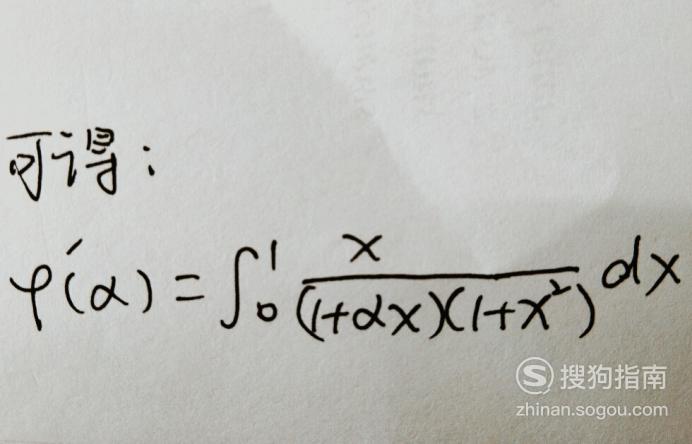 可得:
φ'(α) = ∫₀¹ x/((1+αx)(1+x²)) dx
搜狗指南
zhinan.sogou.com